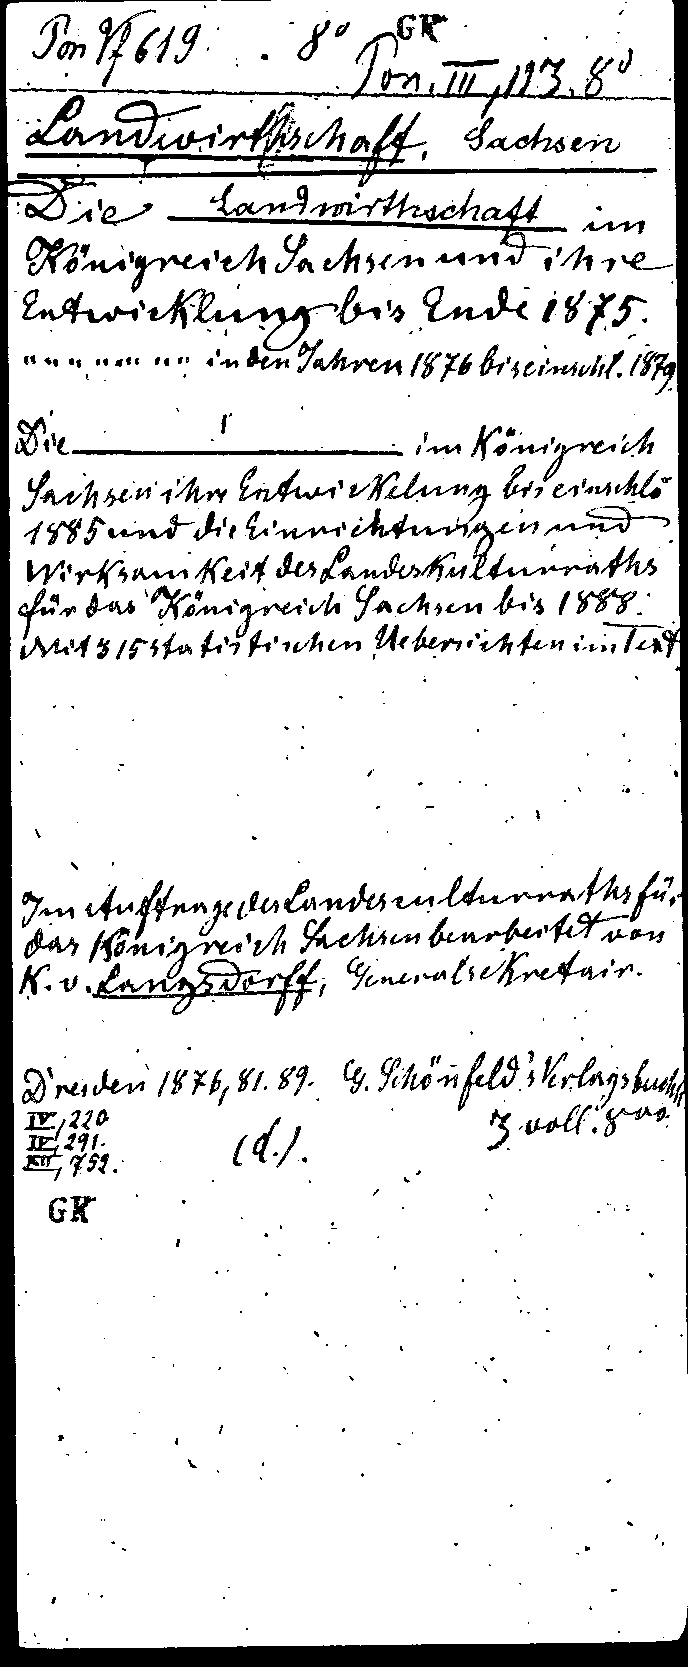 Pon Vf 619. 8° GK
Pon. III, 113. 8°
Landwirthschaft. Sachsen
Die Landwirthschaft im
Königreich Sachsen und ihre
Entwicklung bis Ende 1875.
" " " " " " " " in den Jahren 1876 bis einschl. 1879
Die ——— " ——— im Königreich
Sachsen ihre Entwickelung bis einschl.
1885 und die Einrichtungen und
Wirksamkeit des Landeskulturraths
für das Königreich Sachsen bis 1888.
Mit 315 statistischen Uebersichten im Text
Im Auftrage des Landesculturraths für
das Königreich Sachsen bearbeitet von
K. v. Langsdorff, Generalsekretair.
Dresden 1876, 81. 89. G. Schönfeld's Verlagsbuchh
IV, 220 3 voll. 8vo.
IV, 291. (d.).
XII, 752.
GK